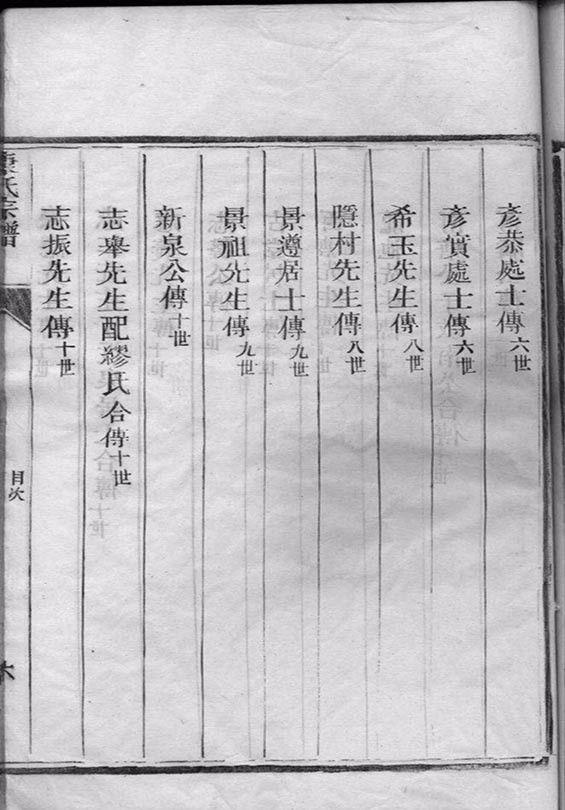 彥恭處士傳六世
彥實處士傳六世
希玉先生傳八世
隱村先生傳八世
景遵居士傳九世
景祖先生傳九世
新泉公傳十世
志舉先生配繆氏合傳十世
志振先生傳十世
氏宗譜
目次
六